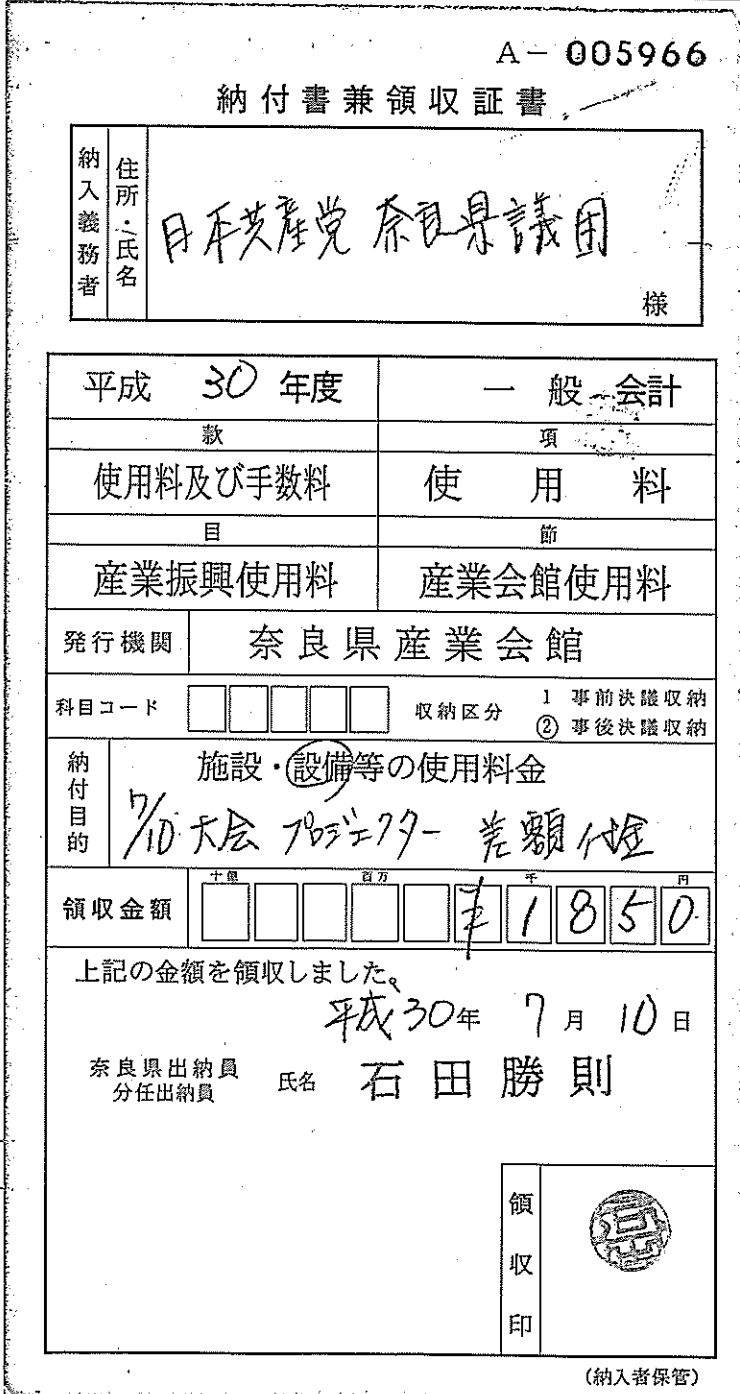 A-005966
納付書兼領収証書
納入義務者
住所・氏名
日本共産党 奈良県議団
様
平成 30 年度
一般会計
款
項
使用料及び手数料
使用料
目
節
産業振興使用料
産業会館使用料
発行機関
奈良県産業会館
科目コード
収納区分
1 事前決議収納
② 事後決議収納
納付目的
施設・設備等の使用料金
7/10 大会 プロジェクター 差額代金
領収金額
十億 百万 千 円
¥1850
上記の金額を領収しました。
平成30年 7月 10日
奈良県出納員
分任出納員
氏名 石田勝則
領収印
(納入者保管)